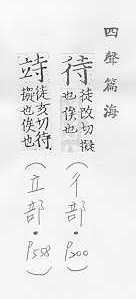 四聲篇海
待 徒改切擬也俟也 (彳部・P200)
徒亥切待擬也俟也 (立部・P558)